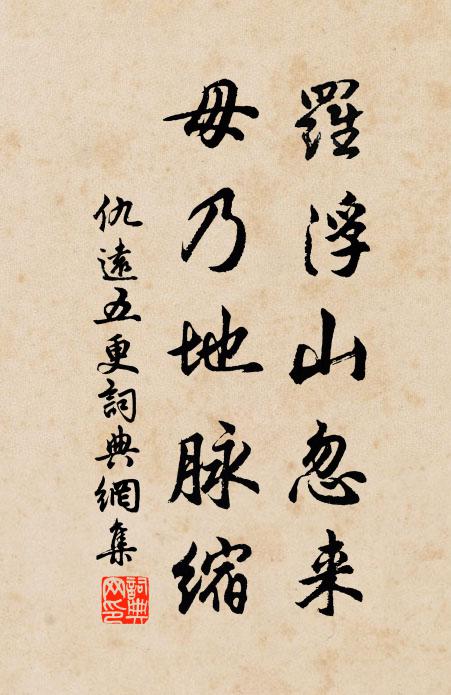 羅浮山忽来
毋乃地脉縮
仇遠五更詞典網集
詞典网印